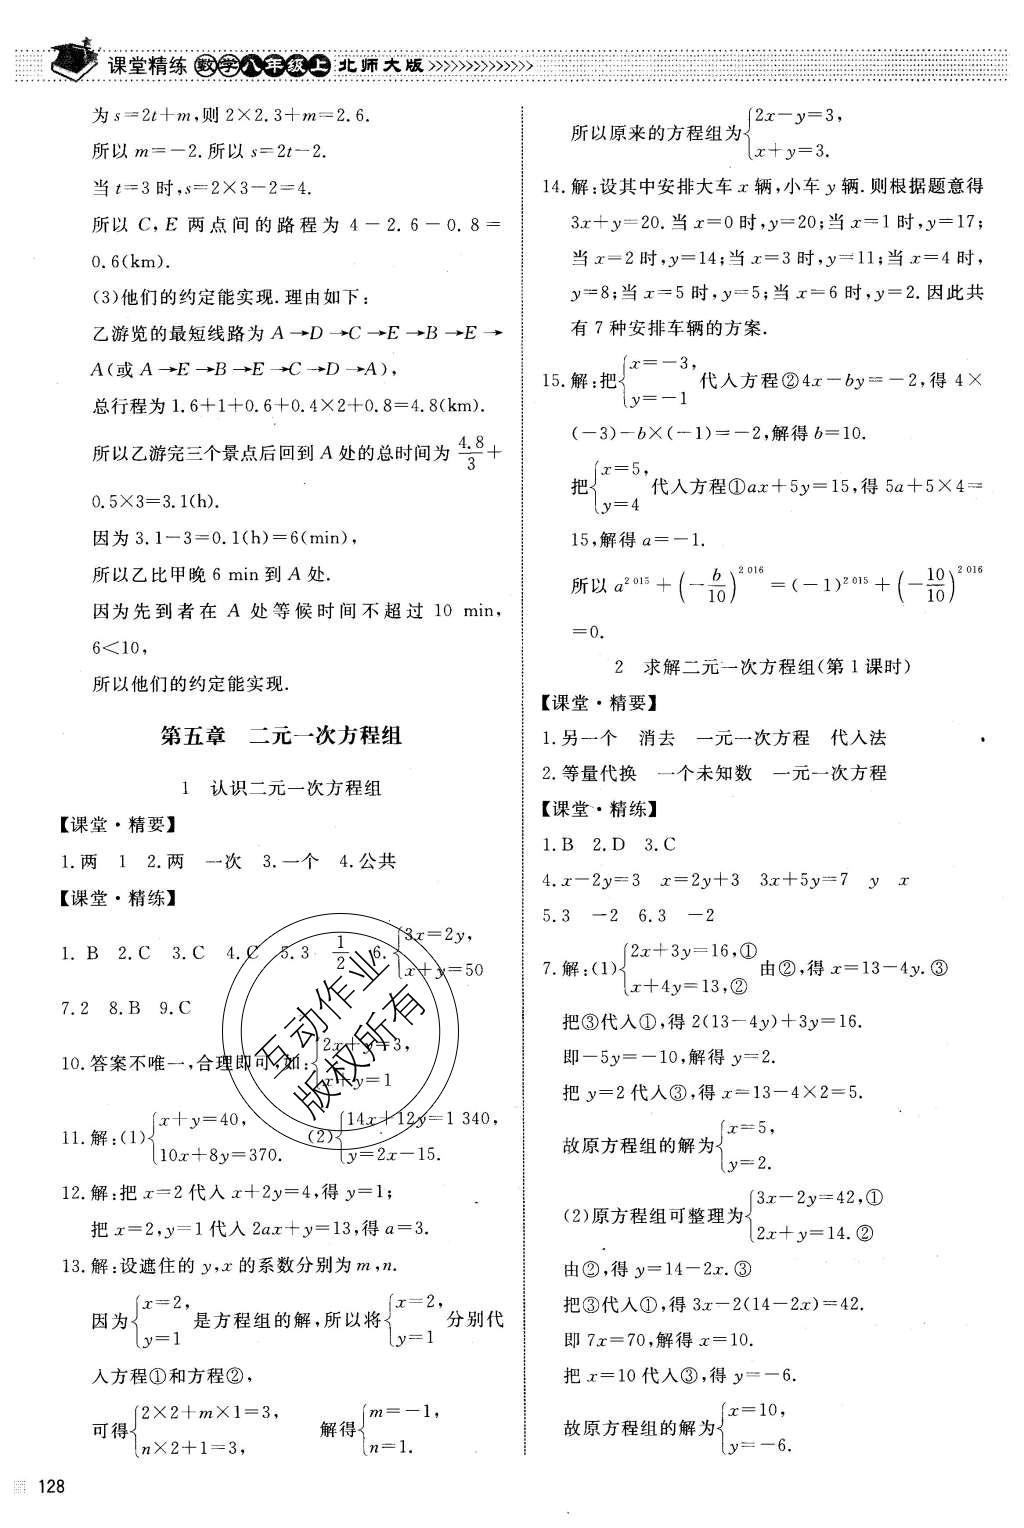 课堂精练 数学八年级上 北师大版 >>>>>>>>>>>>>>
为 s=2t+m,则 2×2.3+m=2.6.
所以 m=-2.所以 s=2t-2.
当 t=3 时,s=2×3-2=4.
所以 C,E 两点间的路程为 4-2.6-0.8=
0.6(km).
(3)他们的约定能实现.理由如下:
乙游览的最短线路为 A→D→C→E→B→E→
A(或 A→E→B→E→C→D→A),
总行程为 1.6+1+0.6+0.4×2+0.8=4.8(km).
所以乙游完三个景点后回到 A 处的总时间为 4.8/3+
0.5×3=3.1(h).
因为 3.1-3=0.1(h)=6(min),
所以乙比甲晚 6 min 到 A 处.
因为先到者在 A 处等候时间不超过 10 min,
6<10,
所以他们的约定能实现.
第五章 二元一次方程组
1 认识二元一次方程组
【课堂·精要】
1.两 1 2.两 一次 3.一个 4.公共
【课堂·精练】
1. B 2.C 3.C 4.C 5.3 1/2 6.{3x=2y, x+y=50
7.2 8.B 9.C
10.答案不唯一,合理即可,如:{2x+y=3, x+y=1
11.解:(1){x+y=40, 10x+8y=370. (2){14x+12y=1 340, y=2x-15.
12.解:把 x=2 代入 x+2y=4,得 y=1;
把 x=2,y=1 代入 2ax+y=13,得 a=3.
13.解:设遮住的 y,x 的系数分别为 m,n.
因为{x=2, y=1 是方程组的解,所以将{x=2, y=1 分别代
入方程①和方程②,
可得{2×2+m×1=3, n×2+1=3, 解得{m=-1, n=1.
128
所以原来的方程组为{2x-y=3, x+y=3.
14.解:设其中安排大车 x 辆,小车 y 辆.则根据题意得
3x+y=20.当 x=0 时,y=20;当 x=1 时,y=17;
当 x=2 时,y=14;当 x=3 时,y=11;当 x=4 时,
y=8;当 x=5 时,y=5;当 x=6 时,y=2.因此共
有 7 种安排车辆的方案.
15.解:把{x=-3, y=-1 代入方程②4x-by=-2,得 4×
(-3)-b×(-1)=-2,解得 b=10.
把{x=5, y=4 代入方程①ax+5y=15,得 5a+5×4=
15,解得 a=-1.
所以 a^2 015+(-b/10)^2 016=(-1)^2 015+(-10/10)^2 016
=0.
2 求解二元一次方程组(第 1 课时)
【课堂·精要】
1.另一个 消去 一元一次方程 代入法
2.等量代换 一个未知数 一元一次方程
【课堂·精练】
1.B 2.D 3.C
4.x-2y=3 x=2y+3 3x+5y=7 y x
5.3 -2 6.3 -2
7.解:(1){2x+3y=16,① x+4y=13,② 由②,得 x=13-4y.③
把③代入①,得 2(13-4y)+3y=16.
即-5y=-10,解得 y=2.
把 y=2 代入③,得 x=13-4×2=5.
故原方程组的解为{x=5, y=2.
(2)原方程组可整理为{3x-2y=42,① 2x+y=14.②
由②,得 y=14-2x.③
把③代入①,得 3x-2(14-2x)=42.
即 7x=70,解得 x=10.
把 x=10 代入③,得 y=-6.
故原方程组的解为{x=10, y=-6.
互动作业
版权所有